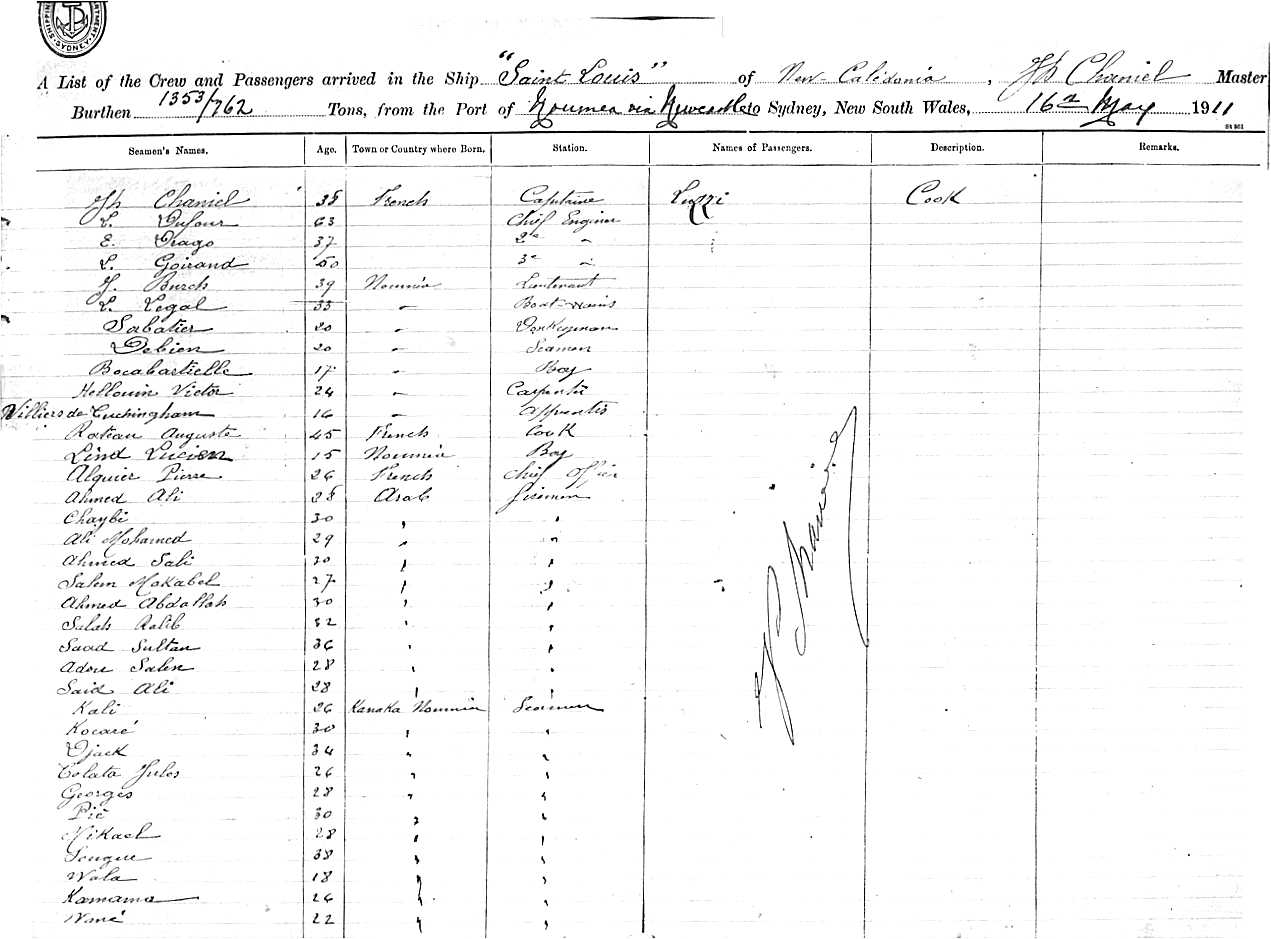 SHIPPING DEPARTMENT. SYDNEY.
A List of the Crew and Passengers arrived in the Ship "Saint Louis" of New Calidonia, Jh Chaniel Master
Burthen 1353/762 Tons, from the Port of Noumea via Newcastle to Sydney, New South Wales, 16th May 1911
Seamen's Names. Age. Town or Country where Born. Station. Names of Passengers. Description. Remarks.
Jh Chaniel 35 French Capitaine Luzzi Cook
L. Dufour 63 Chief Enginer
E. Drago 37 2e "
L. Goirand 50 3e "
J. Burck 39 Nouméa Lieutenant
L. Legal 33 " Boat-
Sabatier 20 " Donkeyman
Debien 20 " Seamen
Bocabartielle 17 " Boy
Hellouin Victor 24 " Carpenter
Villiers de Cuchingham 16 " Apprentis
Rateau Auguste 45 French Cook
Lind Lucien 15 Nouméa Boy
Alquier Pierre 26 French Chief Officer
Ahmed Ali 28 Arab Firemen
Chaybi 30 " "
Ali Mohamed 29 " "
Ahmed Sali 30 " "
Salem Mokabel 27 " "
Ahmed Abdallah 30 " "
Salah Kalib 32 " "
Saad Sultan 36 " "
Adou Salen 28 " "
Said Ali 28 " "
Kali 26 Kanaka Nouméa Seamen
Kocaré 30 " "
Djack 34 " "
Colata Jules 26 " "
Georges 28 " "
Pie 30 " "
Mikael 28 " "
Songue 38 " "
Wala 18 " "
Kamama 26 " "
Wané 22 " "
Jh Chaniel